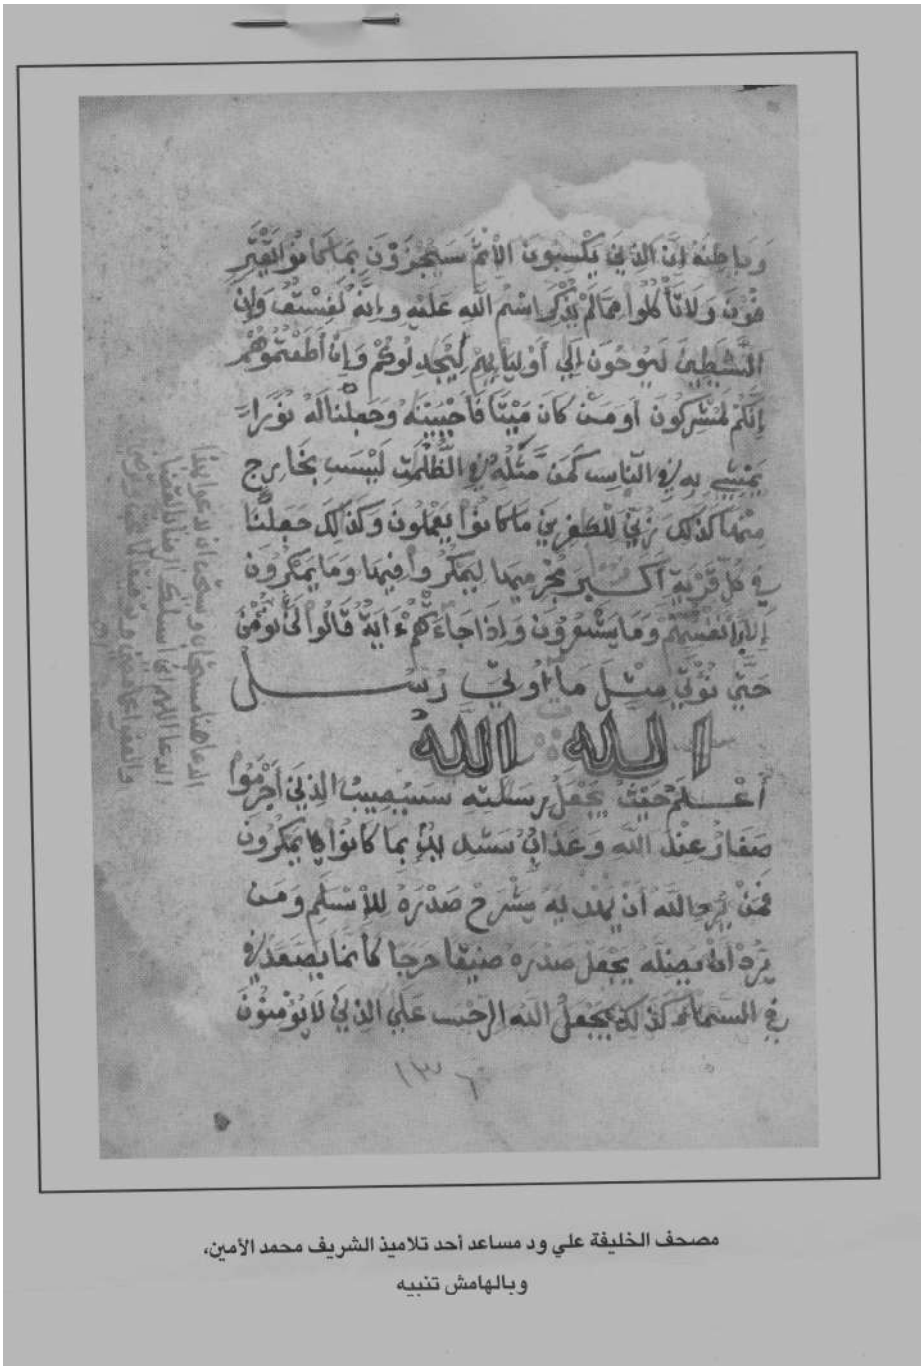 وَبَاطِنَهُ إِنَّ الذِينَ يَكْسِبُونَ الْإِثْمَ سَيُجْزَوْنَ بِمَا كَانُوا يَقْتَرِ
فُونَ وَلَا تَأْكُلُوا مِمَّا لَمْ يُذْكَرِ اسْمُ اللَّهِ عَلَيْهِ وَإِنَّهُ لَفِسْقٌ وَإِنَّ
الشَّيَٰطِينَ لَيُوحُونَ إِلَىٰ أَوْلِيَآئِهِمْ لِيُجَٰدِلُوكُمْ وَإِنْ أَطَعْتُمُوهُمْ
إِنَّكُمْ لَمُشْرِكُونَ أَوَمَن كَانَ مَيْتًا فَأَحْيَيْنَٰهُ وَجَعَلْنَا لَهُ نُورًا
يَمْشِي بِهِ فِي النَّاسِ كَمَن مَّثَلُهُ فِي الظُّلُمَٰتِ لَيْسَ بِخَارِجٍ
مِنْهَا كَذَٰلِكَ زُيِّنَ لِلْكَٰفِرِينَ مَا كَانُوا يَعْمَلُونَ وَكَذَٰلِكَ جَعَلْنَا
فِي كُلِّ قَرْيَةٍ أَكَٰبِرَ مُجْرِمِيهَا لِيَمْكُرُوا فِيهَا وَمَا يَمْكُرُونَ
إِلَّا بِأَنفُسِهِمْ وَمَا يَشْعُرُونَ وَإِذَا جَاءَتْهُمْ ءَايَةٌ قَالُوا لَن نُّؤْمِنَ
حَتَّىٰ نُؤْتَىٰ مِثْلَ مَا أُوتِيَ رُسُلُ
اللَّه اللَّهُ
أَعْلَمُ حَيْثُ يَجْعَلُ رِسَٰلَٰتِهِ سَيُصِيبُ الذِينَ أَجْرَمُوا
صَغَارٌ عِنْدَ اللَّهِ وَعَذَابٌ شَدِيدٌ بِمَا كَانُوا يَمْكُرُونَ
فَمَنْ يُرِدِ اللَّهُ أَنْ يَهْدِيَهُ يَشْرَحْ صَدْرَهُ لِلْإِسْلَٰمِ وَمَن
يُرِدْ أَن يُضِلَّهُ يَجْعَلْ صَدْرَهُ ضَيِّقًا حَرَجًا كَأَنَّمَا يَصَّعَّدُ فِي
فِي السَّمَاءِ كَذَٰلِكَ يَجْعَلُ اللَّهُ الرِّجْسَ عَلَى الذِينَ لَا يُؤْمِنُونَ
١٣٦
الدعا هنا مستجاب ويستحب أن يدعوا بهذا
الدعا اللهم اني اسلك
مصحف الخليفة علي ود مساعد أحد تلاميذ الشريف محمد الأمين،
وبالهامش تنبيه